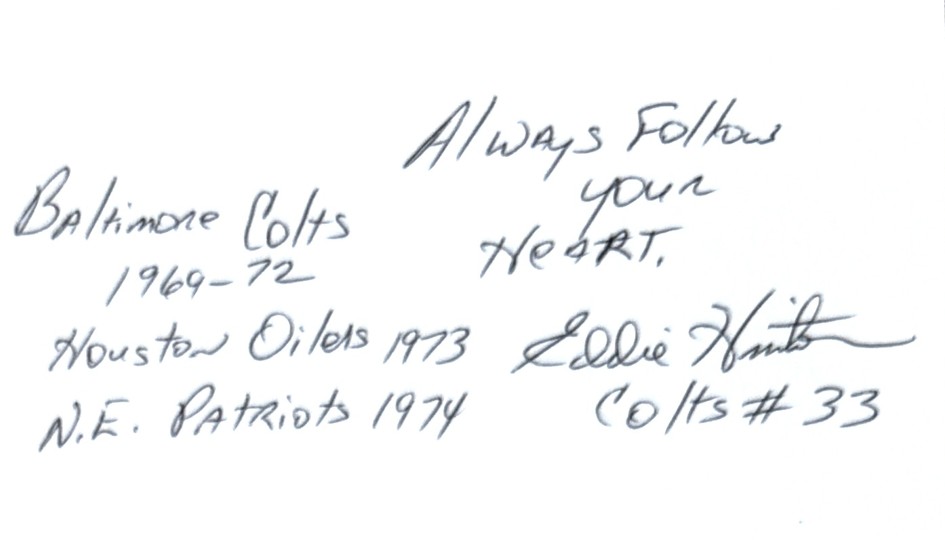 Always Follow
your
Heart.
Baltimore Colts
1969-72
Houston Oilers 1973
N.E. Patriots 1974
Eddie Hinton
Colts # 33